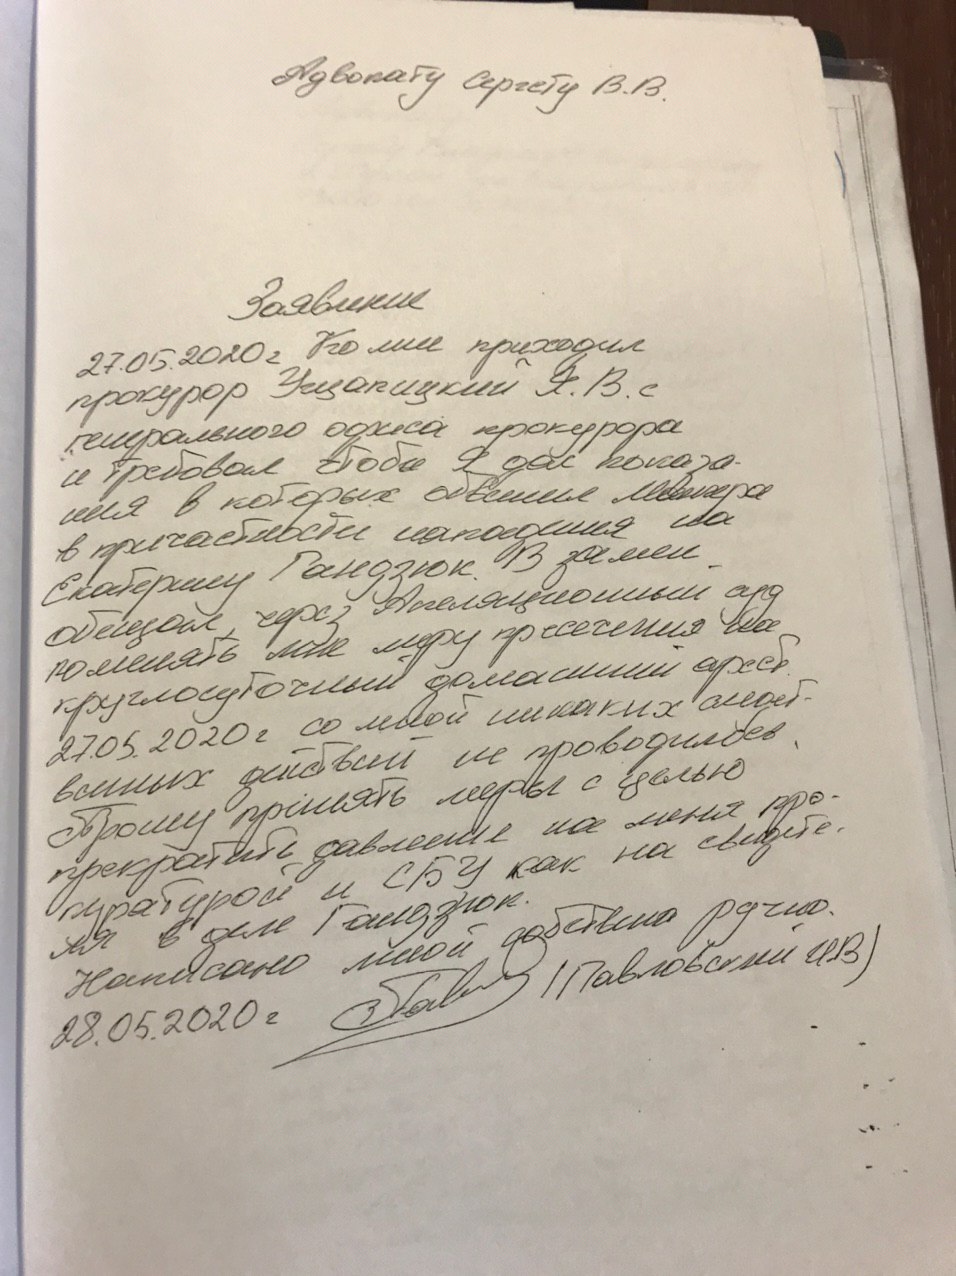 Адвокату Сергету В.В.
Заявление
27.05.2020г Ко мне приходил
прокурор Ущапицкий Я.В. с
генерального офиса прокурора
и требовал чтобы я дал показа-
ния в которых обвинил Мангера
в причастности нападения на
Екатерину Гандзюк. В замен
обещал, через Апеляционный суд
поменять мне меру пресечения на
круглосуточный домашний арест.
27.05.2020г со мной никаких следст-
венных действий не проводилось.
Прошу принять меры с целью
прекратить давление на меня про-
куратурой и СБУ как на свидете-
ля в деле Гандзюк.
Написано мной собствено ручно.
28.05.2020г (Павловский И.В)